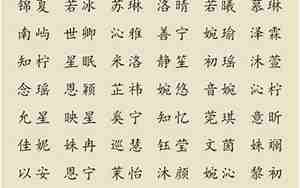 锦夏 若冰 苏琳 洛晴 若曦 慕琳
南屿 世卿 沁雅 善宁 婉瑜 泽霖
知柠 星眠 洛笙 静笙 初瑶 沐萱
念瑶 恩颖 芷祎 婉悠 音婉 沁柠
允星 映星 奚宁 知忆 莞琪 意昕
佳妮 姝冉 巡慧 钰莹 文茵 姝斓
以安 恩宁 茉怡 沐颜 婉沁 黎初